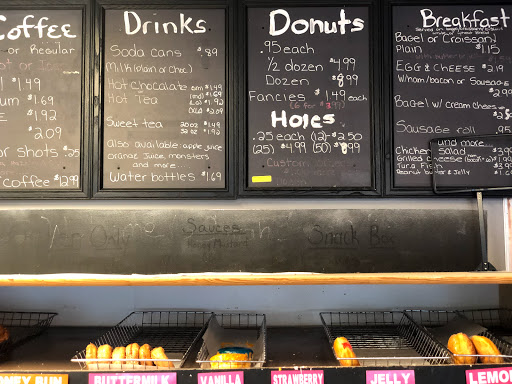 Coffee
or Regular
$1.49
$1.69
$1.92
$2.09
or shots $.25
coffee 12.99
Drinks
Soda cans $.89
Milk (Plain or Choc)
Hot Chocolate sm $1.49
Hot Tea (md) $1.69
(L) $1.92
(XL) $2.09
Sweet tea 20oz $1.49
32oz $1.92
Also available: apple juice
orange juice, monsters
and more
Water bottles $1.69
Donuts
.95 each
½ dozen $4.99
Dozen $8.99
Fancies $1.49 each
Holes
.25 each (12)-$2.50
(25) $4.99 (50) $8.99
Breakfast
Bagel or Croissant
Plain $1.15
Egg & Cheese $2.19
w/ham/bacon or Sausage
Bagel w/ cream cheese
Sausage roll .95
and more
Chicken salad
Grilled cheese
Tuna Fish
Peanut butter & Jelly
Only
Sauces
Snack Box
HONEY BUN
BUTTERMILK
VANILLA
STRAWBERRY
JELLY
LEMO